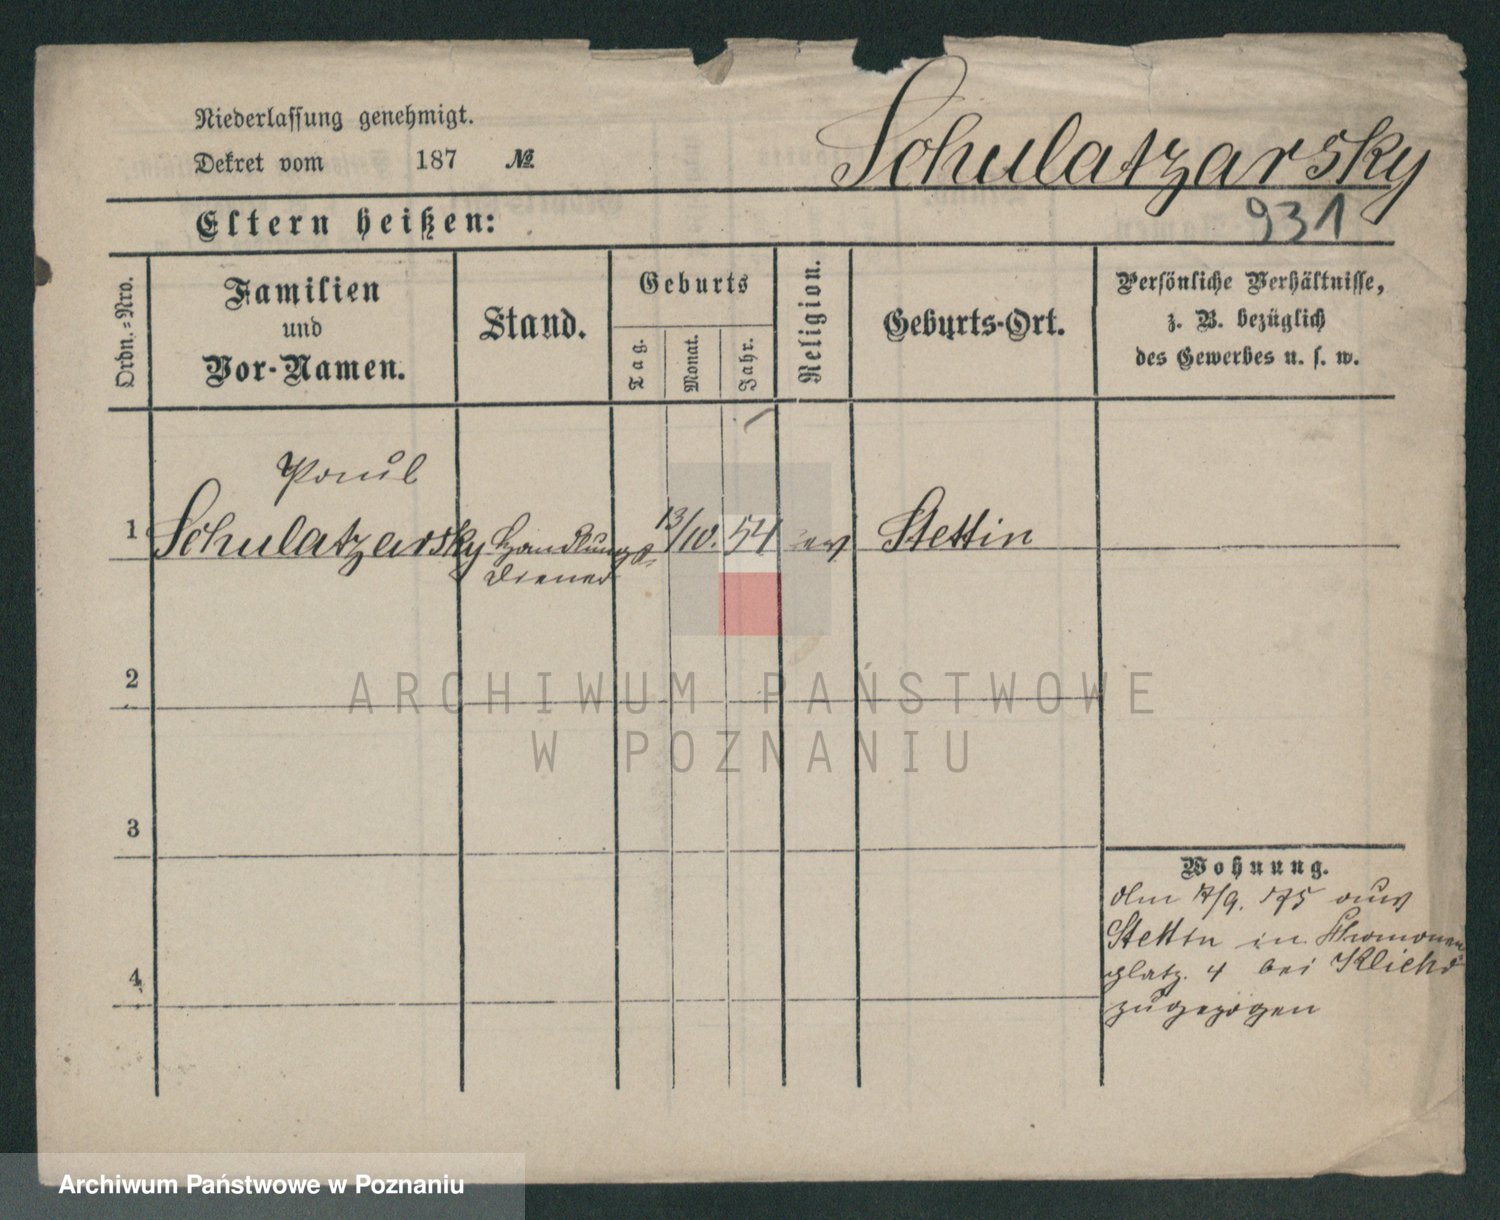 Niederlassung genehmigt.
Dekret vom 187 №
Schulatzarsky
931
Eltern heißen:
Ordn.=Nro.
Familien
und
Vor-Namen.
Stand.
Geburts
Tag.
Monat.
Jahr.
Religion.
Geburts-Ort.
Persönliche Verhältnisse,
z. B. bezüglich
des Gewerbes u. s. w.
Paul
1 Schulatzarsky Handlungs 13/10. 54 ev Stettin
Diener
2
3
4
Wohnung.
Am 17/9. 75 aus
Stettin in
platz. 4 bei
zugezogen
ARCHIWUM PAŃSTWOWE
W POZNANIU
Archiwum Państwowe w Poznaniu